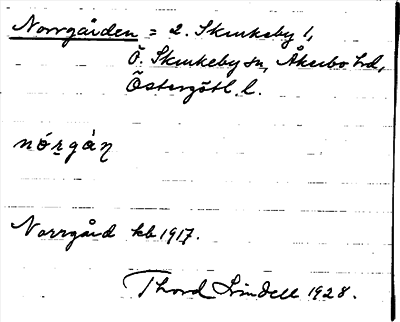 Norrgården = 2. Skinkeby 1,
Ö. Skrukeby sn, Åkerbo hd,
Östergötl. l.
nórgàn
Norrgård kb 1917.
Thord Lindell 1928.